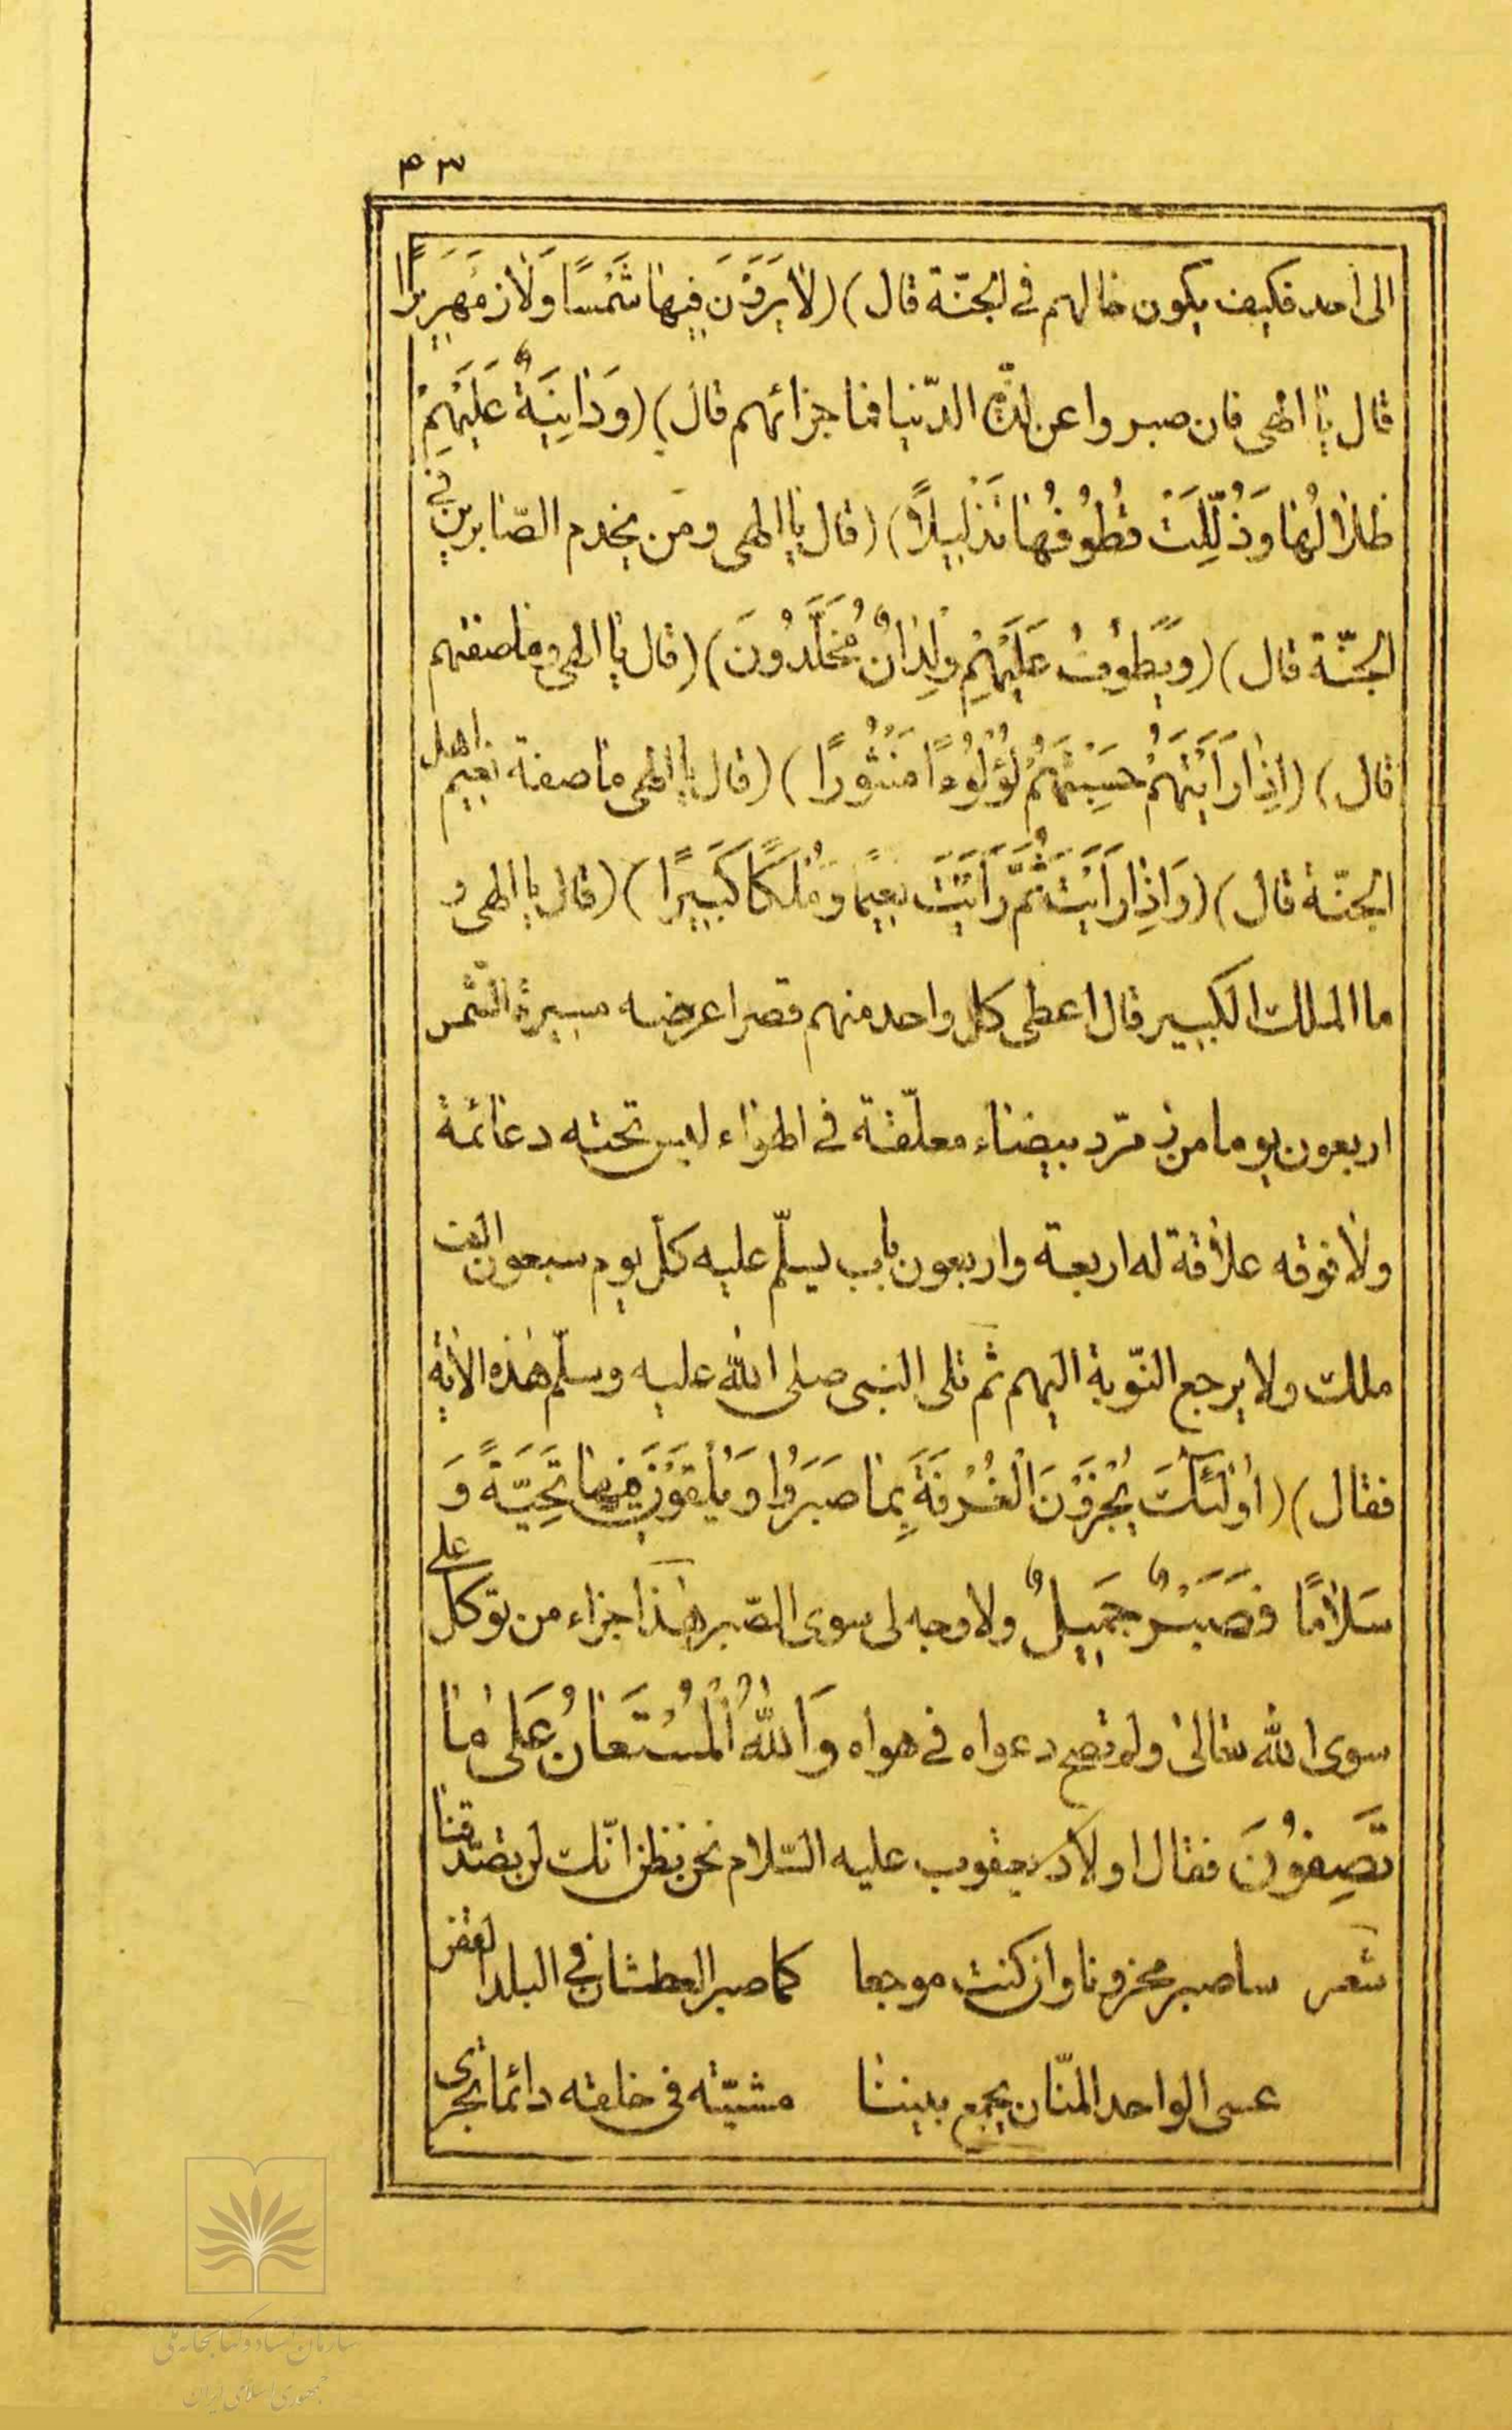 ٤٣
الى احد فكيف يكون حالهم فى الجنّة قال) (لَا يَرَوْنَ فِيهَا شَمْسًا وَلَا زَمْهَرِيرًا
قال يا الهى فان صبروا عن لذّة الدّنيا فما جزائهم قال) (وَدَانِيَةٌ عَلَيْهِمْ
ظلَالُهَا وَذُلِّلَتْ قُطُوفُهَا تَذْلِيلًا) (قال يا الهى ومن يخدم الصّابرين فى
الجنّة قال) (وَيَطُوفُ عَلَيْهِمْ وِلْدَانٌ مُخَلَّدُونَ) (قال يا الهى وما صفتهم
قال) (اِذَا رَاَيْتَهُمْ حَسِبْتَهُمْ لُؤْلُؤًا مَنْثُورًا) (قال يا الهى ما صفة نعيم اهل
الجنّة قال) (وَاِذَا رَاَيْتَ ثَمَّ رَاَيْتَ نَعِيمًا وَمُلْكًا كَبِيرًا) (قال يا الهى و
ما الملك الكبير قال اعطى كل واحد منهم قصرا عرضه مسيرة الشّمس
اربعون يوما من زمرّد بيضاء معلّقة فى الهواء ليس تحته دعائمة
ولا فوقه علاقة له اربعة واربعون باب يسلّم عليه كلّ يوم سبعون الف
ملك ولا يرجع النّوبة اليهم ثم تلى النبى صلى الله عليه وسلّم هذه الاية
فقال) (اُولٰئِكَ يُجْزَوْنَ الْغُرْفَةَ بِمَا صَبَرُوا وَيُلَقَّوْنَ فِيهَا تَحِيَّةً وَ
سَلَامًا فَصَبْرٌ جَمِيلٌ ولا وجه لى سوى الصّبر هذا جزاء من توكل على
سوى الله تعالى ولم تصح دعواه فى هواه وَاللّٰهُ الْمُسْتَعَانُ عَلٰى مَا
تَصِفُونَ فقال اولاد يعقوب عليه السّلام نحن نظن انّك لن تصدّقنا
شعر ساصبر محزونا وان كنت موجعا كما صبر العطشان فى البلد القفر
عسى الواحد المنّان يجمع بيننا مشيّته فى خلقه دائما تجرى
سازمان اسناد و کتابخانه ملی
جمهوری اسلامی ایران